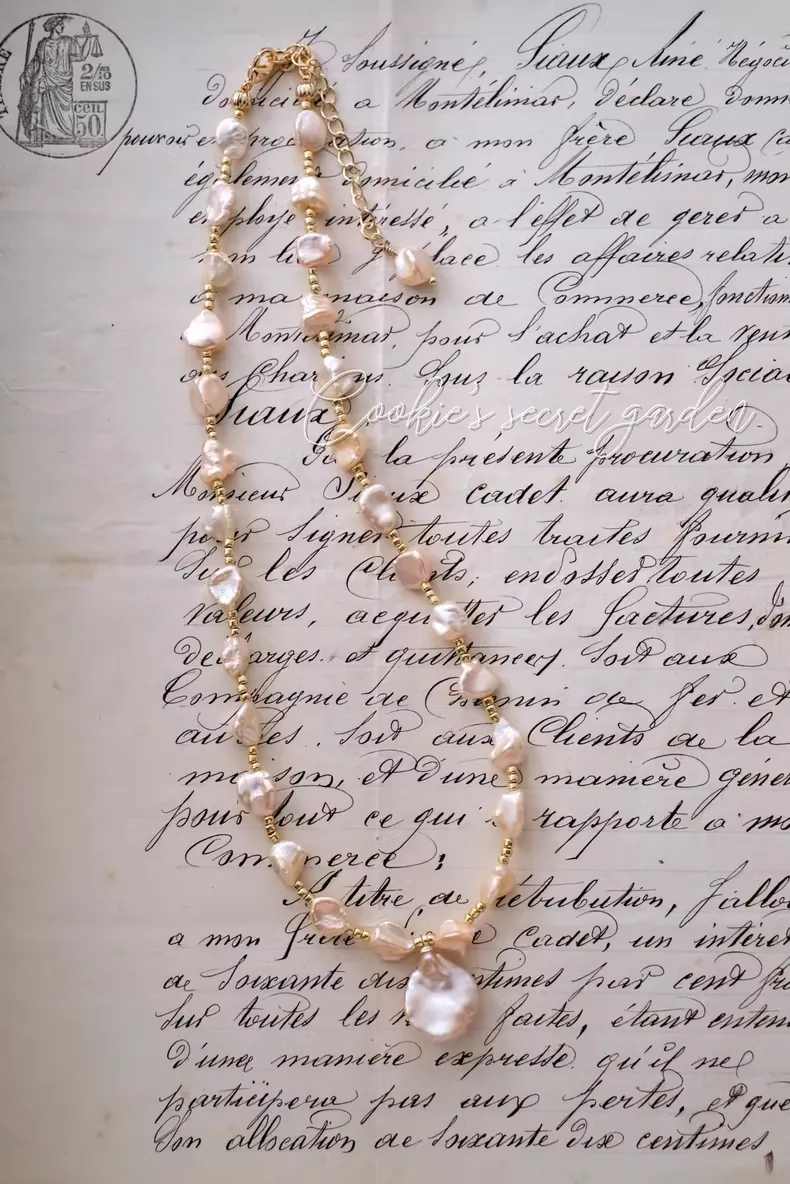 2/10
EN SUS
cen
50.
Soussigné, Siaux Aîné Négoci
domicilié a Montélimar, déclare donn
pouvoir et procuration, a mon frère Siaux ca
également domicilié a Montélimar, mon
employé intéressé, a l'effet de gerer a
les affaires relati
a ma maison de Commerce,
Montélimar, pour l'achat et la ven
des Char ns. Sous la raison Socia
Siaux
Cookie's secret garden
la présente procuration
Monsieur cadet aura quali
pour signer toutes traites fourni
sur les Clients, endosser toutes
valeurs, acquitter les factures,
décharges et quittances. Soit aux
Compagnie de Chemin de fer et
autres. Soit aux Clients de la
maison, et d'une manière géner
pour tout ce qui rapporte a ma
Commerce;
A titre de rétribution, j'allou
a mon frère cadet, un intéret
de Soixante dix centimes par cent fra
sur toutes les faites, étant enten
d'une manière expresse qu'il ne
participera pas aux pertes, et que
Son allocation de Soixante dix centimes,